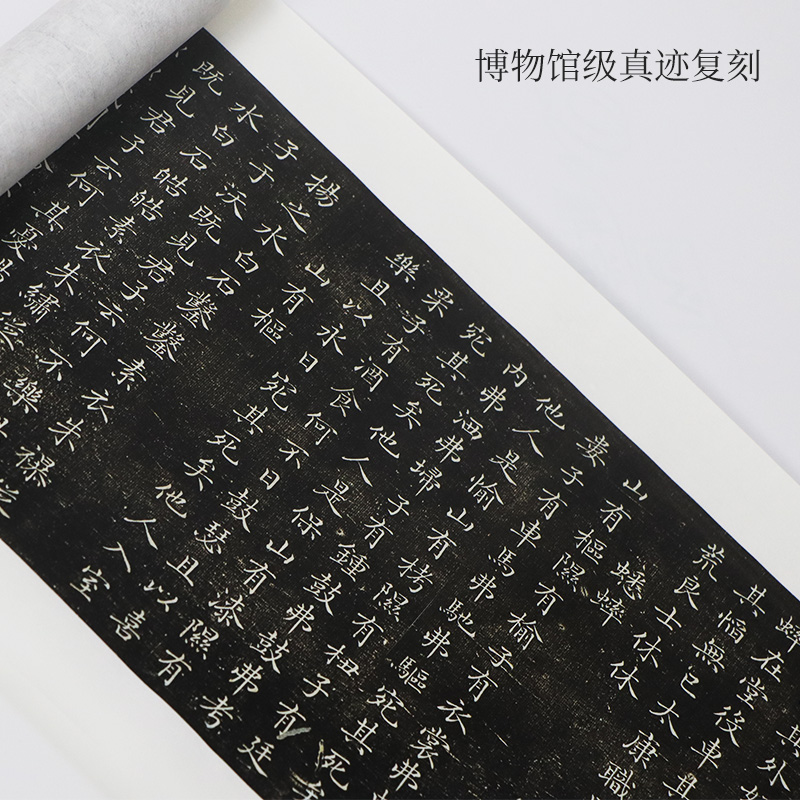 博物馆级真迹复刻
其外好
蟀在堂役車其
其慆無已太康職
荒良士休休
蟋蟀
山有樞隰有榆子有衣裳弗
婁子有車馬弗馳弗驅宛其死
他人是愉山有栲隰有杻子有廷
內弗洒弗埽子有鍾鼓弗鼓弗考
宛其死矣他人是保山有漆隰有
栗子有酒食何不日鼓瑟且以喜
樂且以永日宛其死矣他人入室
山有樞
揚之水白石鑿鑿素衣朱襮從
子于沃既見君子云何不樂
水白石皓皓素衣朱繡
既見君子云何其憂